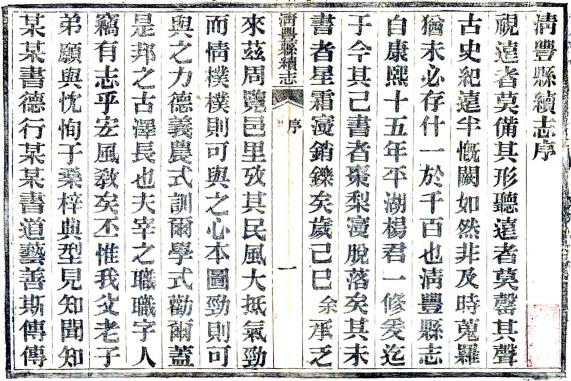 清豐縣續志序
視遠者莫備其形聽遠者莫罄其聲
古史紀遠半慨闕如然非及時蒐羅
猶未必存什一於千百也清豐縣志
自康熙十五年平湖楊君一修矣迄
于今其已書者棗梨寖脫落矣其未
書者星霜寖銷鑠矣歲己巳余承乏
清豐縣續志 序 一
來茲周覽邑里攷其民風大抵氣勁
而情樸樸則可與之心本圖勁則可
與之力德義農式訓爾學式勸爾蓋
是邦之古澤長也夫宰之職職字人
竊有志乎安風敎矣丕惟我父老子
弟願與忱恂于桑梓典型見知聞知
某某書德行某某書道藝善斯傳傳